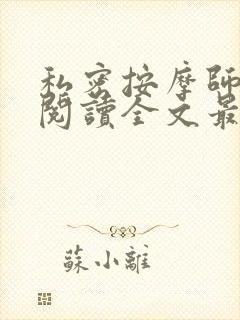 私密按摩師
閱讀全文最
蘇小離